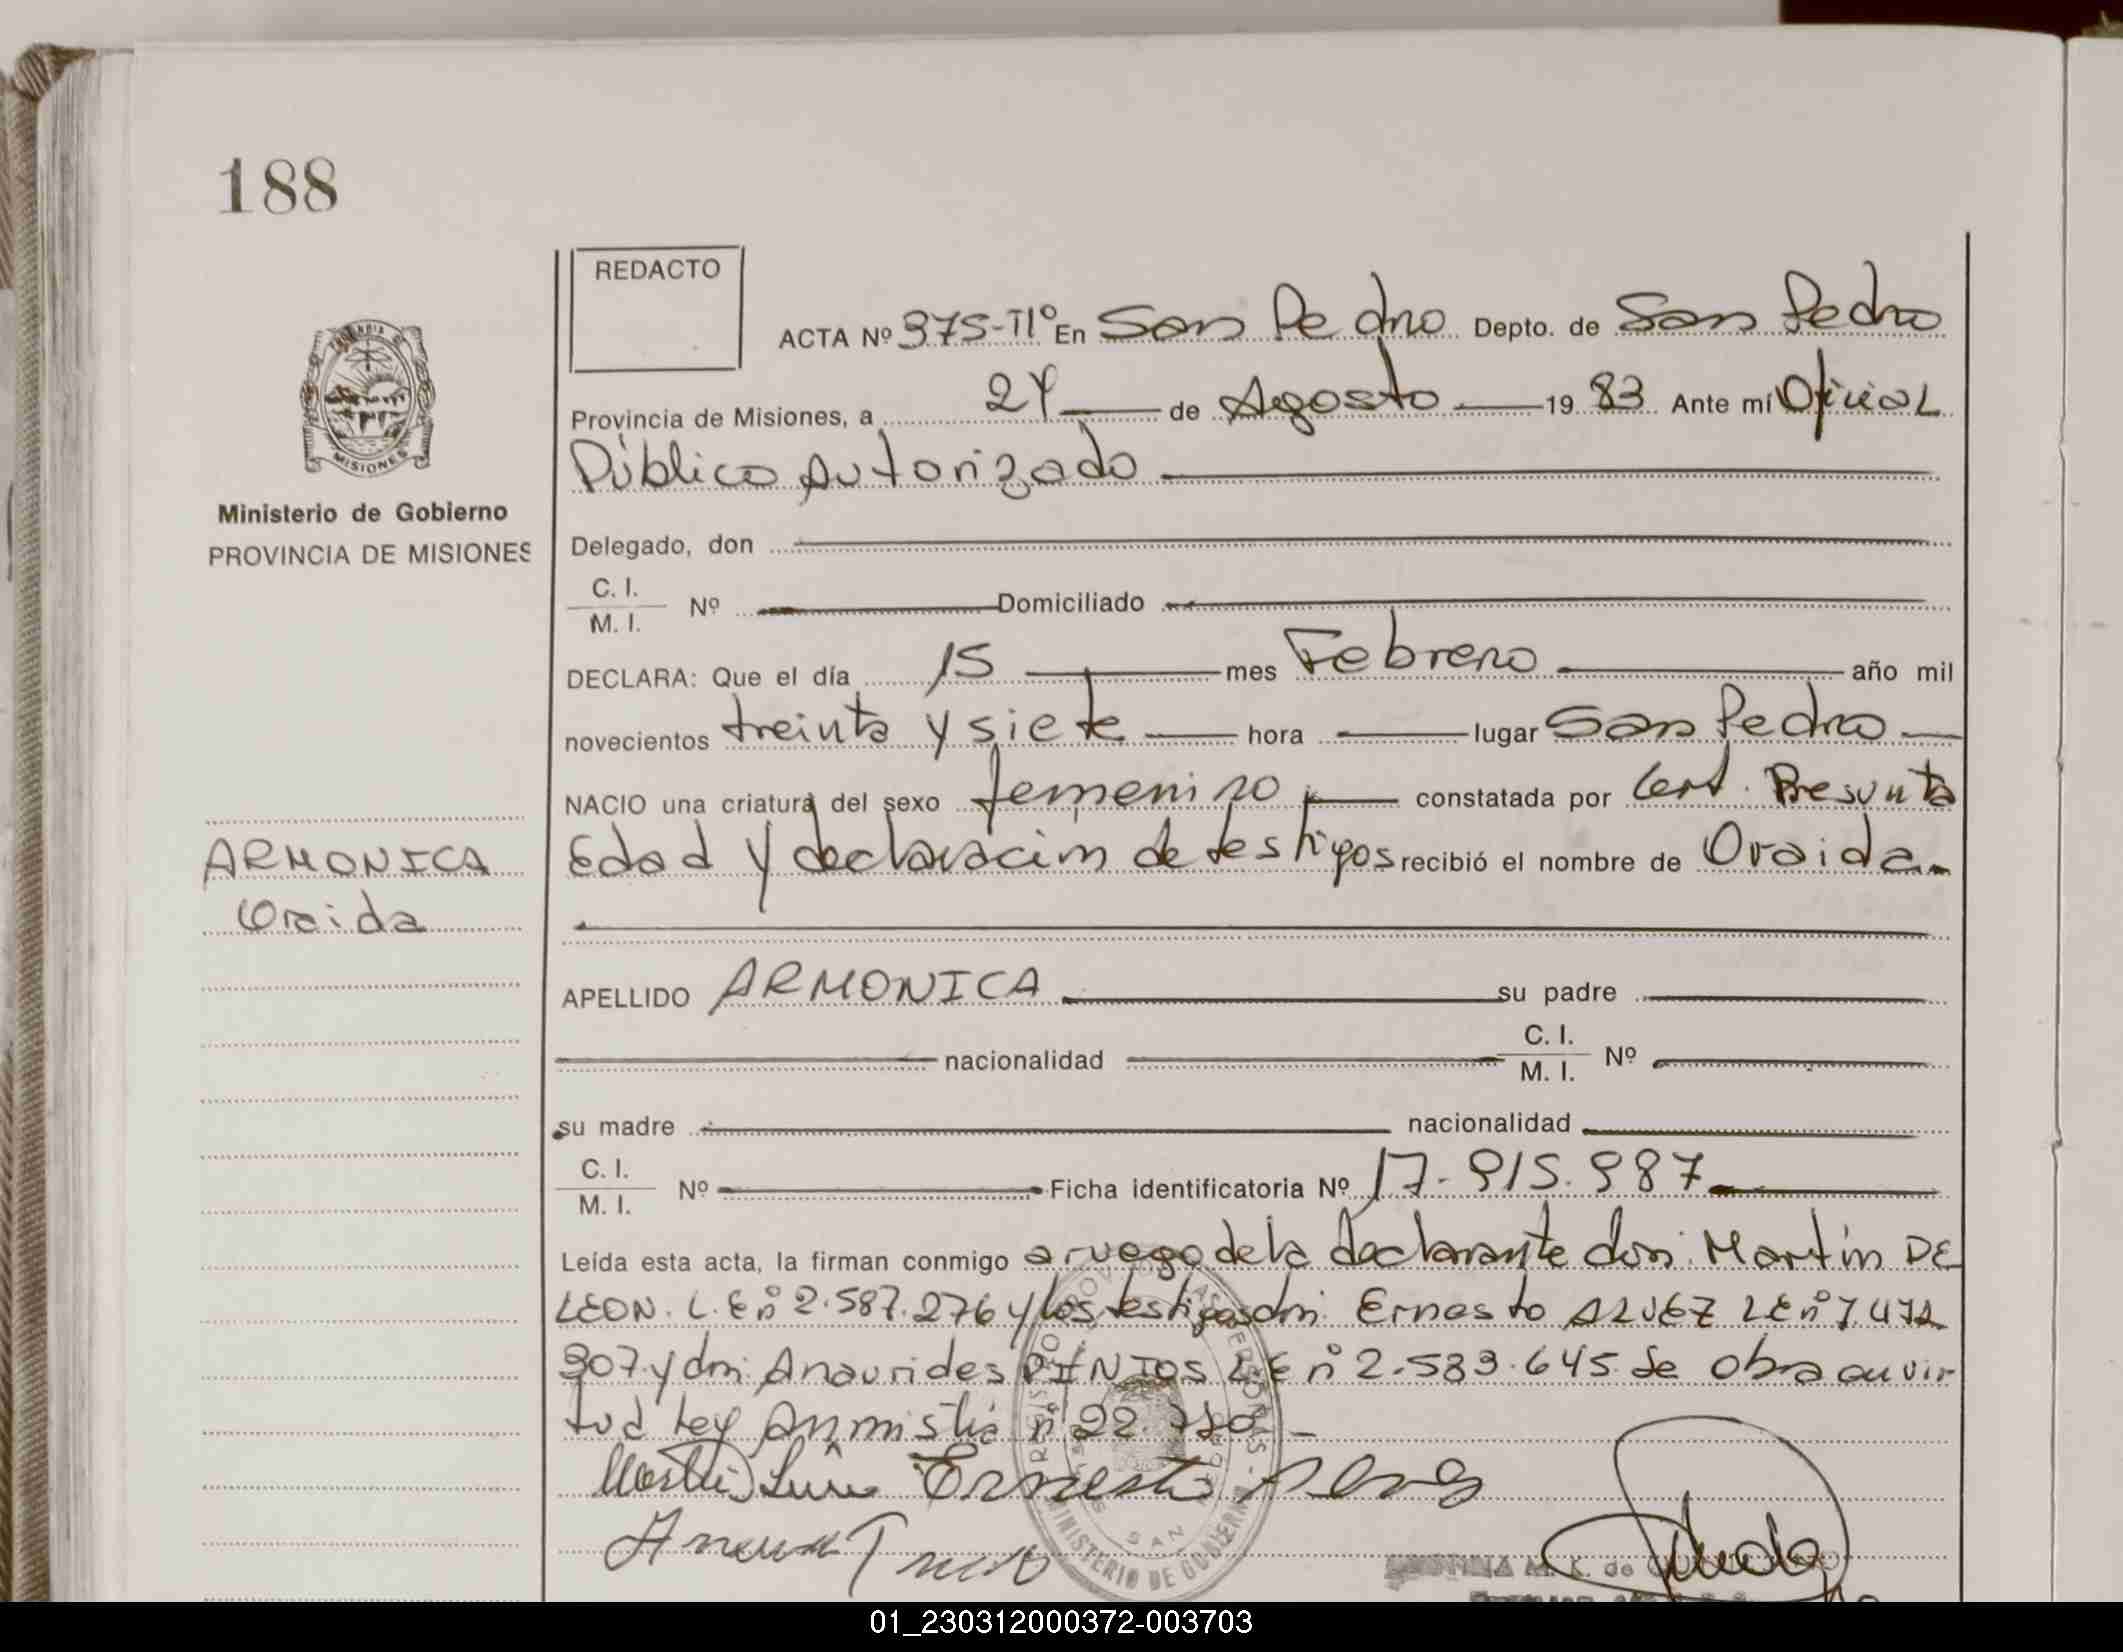 188
REDACTO
ACTA Nº 375-TIº En San Pedro Depto. de San Pedro
Provincia de Misiones, a 24 de Agosto 1983 Ante mí Oficial
Público Autorizado
Ministerio de Gobierno
PROVINCIA DE MISIONES
Delegado, don
C. I.
M. I.
Nº Domiciliado
DECLARA: Que el día 15 mes Febrero año mil
novecientos treinta y siete hora lugar San Pedro
NACIO una criatura del sexo femenino constatada por Cert. Presunta
Edad y declaración de testigos recibió el nombre de Oraida
ARMONICA
Oraida
APELLIDO ARMONICA su padre
nacionalidad C. I.
M. I. Nº
su madre nacionalidad
C. I.
M. I.
Nº Ficha identificatoria Nº 17.915.987
Leída esta acta, la firman conmigo a ruego de la declarante don: Martín DE
LEON. L.E nº 2.587.276 y los testigos dn: Ernesto ALVEZ LE nº 7.472
307 y dn: Anaurides PINTOS LE nº 2.583.645. Se obra en vir-
tud Ley Anmistía nº 22.
Ernesto
MISIONES
MINISTERIO DE GOBIERNO
SAN
01_230312000372-003703